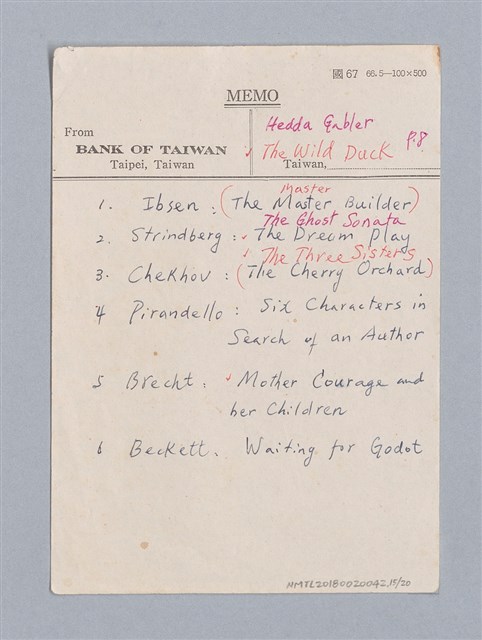 國 67 66.5—100×500
MEMO
From
BANK OF TAIWAN
Taipei, Taiwan
Hedda Gabler
The Wild Duck P.8
Taiwan,
Master
1. Ibsen : (The Master Builder)
The Ghost Sonata
2. Strindberg : The Dream Play
The Three Sisters
3. Chekhov : (The Cherry Orchard)
4 Pirandello : Six Characters in
Search of an Author
5 Brecht : Mother Courage and
her Children
6 Beckett. Waiting for Godot
NMTL20180020042.15/20